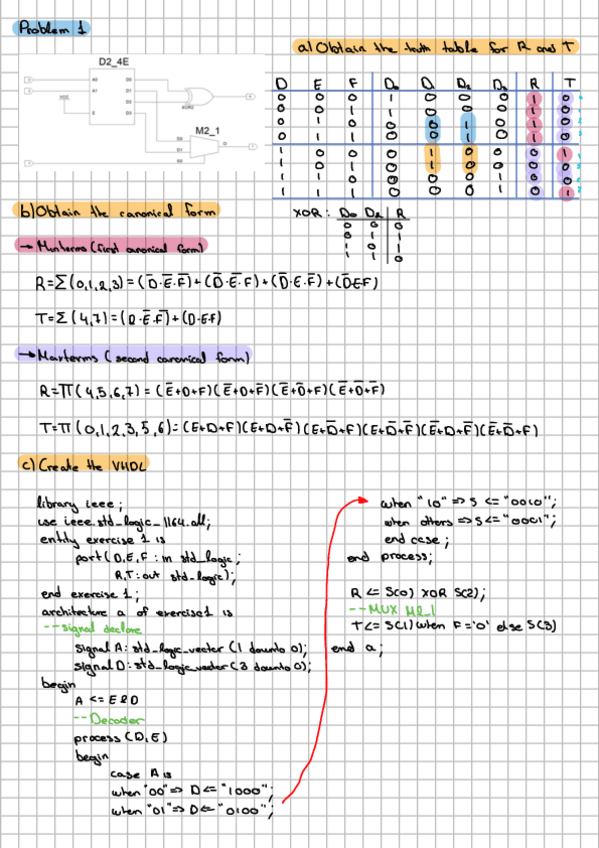 Problem 1
a) Obtain the truth table for R and T
D2_4E
A0 D0
A1 D1
VCC D2
E D3
XOR2
M2_1
D0
D1 O
S0
D E F D₀ D₁ D₂ D₃ R T
0 0 0 1 0 0 0 1 0
0 0 1 1 0 0 0 1 0
0 1 0 0 0 1 0 1 0
0 1 1 0 0 1 0 1 0
1 0 0 0 1 0 0 0 1
1 0 1 0 1 0 0 0 0
1 1 0 0 0 0 1 0 0
1 1 1 0 0 0 1 0 1
b) Obtain the canonical form
XOR: D₀ D₂ R
0 0 0
0 1 1
1 0 1
1 1 0
→ Minterms (first canonical form)
R=Σ(0,1,2,3) = (D̄·Ē·F̄)+(D̄·Ē·F)+(D̄·E·F̄)+(D̄·E·F)
T=Σ(4,7)=(D·Ē·F̄)+(D·E·F)
→ Maxterms (second canonical form)
R=∏(4,5,6,7) = (Ē+D+F)(Ē+D+F̄)(Ē+D̄+F)(Ē+D̄+F̄)
T=∏(0,1,2,3,5,6)=(E+D+F)(E+D+F̄)(E+D̄+F)(E+D̄+F̄)(Ē+D+F̄)(Ē+D̄+F)
c) Create the VHDL
library ieee;
use ieee.std_logic_1164.all;
entity exercise 1 is
port(D,E,F : in std_logic;
R,T: out std_logic);
end exercise 1;
architecture a of exercise1 is
--signal declare
signal A: std_logic_vector (1 downto 0);
signal D: std_logic_vector (3 downto 0);
begin
A <= E & D
--Decoder
process (D,E)
begin
case A is
when "00" => D <= "1000";
when "01" => D <= "0100";
when "10" => S <= "0010";
when others => S <= "0001";
end case;
end process;
R <= S(0) XOR S(2);
--MUX M2_1
T <= S(1) when F = '0' else S(3)
end a;